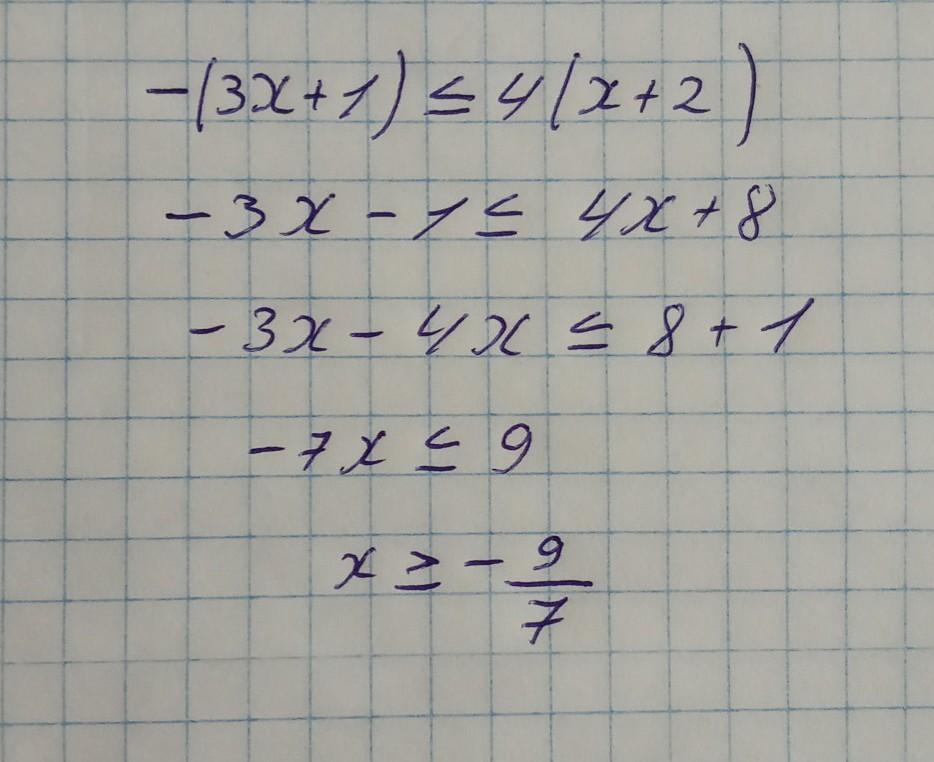 -(3x+1) ≤ 4(x+2)
-3x - 1 ≤ 4x + 8
-3x - 4x ≤ 8 + 1
-7x ≤ 9
x ≥ - 9/7